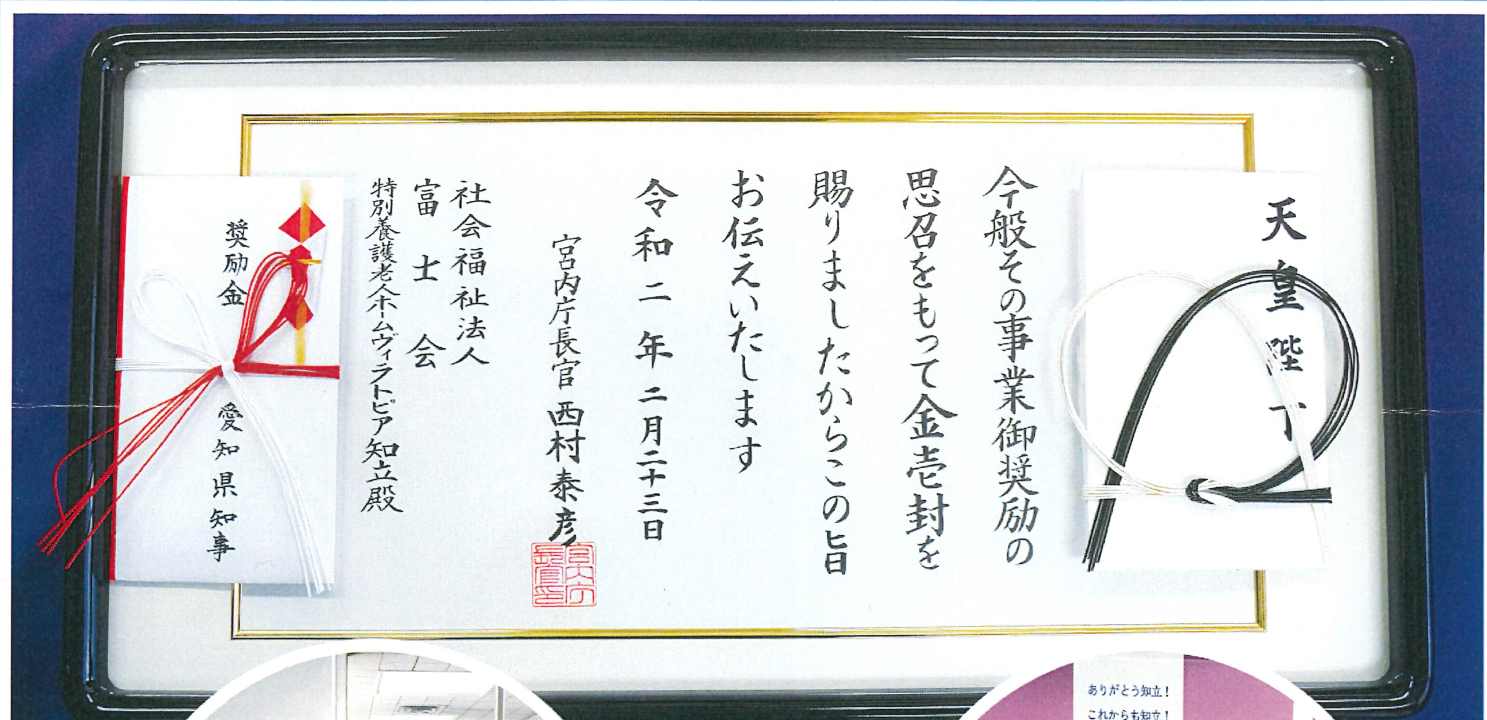 天皇陛下
今般その事業御奨励の
思召をもって金壱封を
賜りましたからこの旨
お伝えいたします
令和二年二月二十三日
宮内庁長官 西村泰彦
宮内庁長官印
社会福祉法人
富士会
特別養護老人ホームヴィラトピア知立殿
奨励金
愛知県知事
ありがとう知立!
これからも知立!